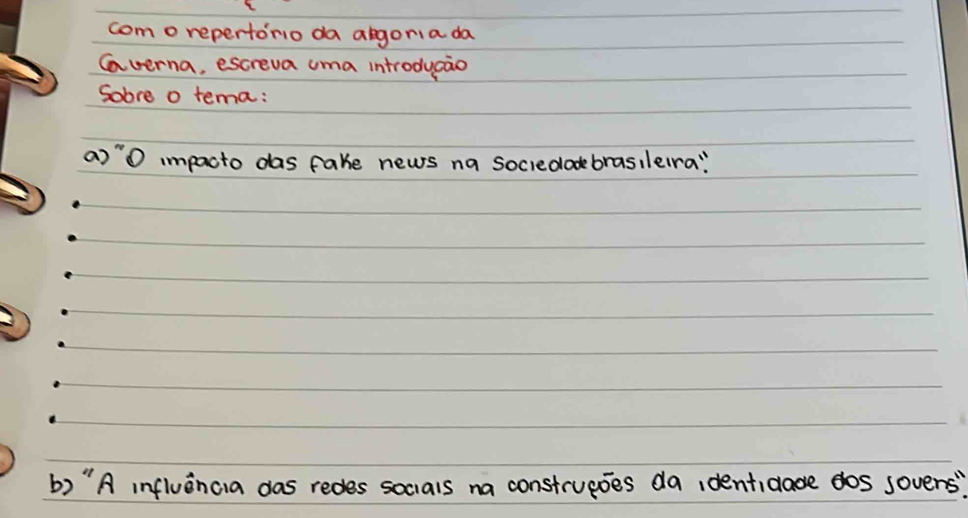 com o repertório da alegoria da
Caverna, escreva uma introdução
Sobre o tema:
a) "O impacto das fake news na Sociedade brasileira".
b) "A influência das redes sociais na construções da identidade dos jovens".